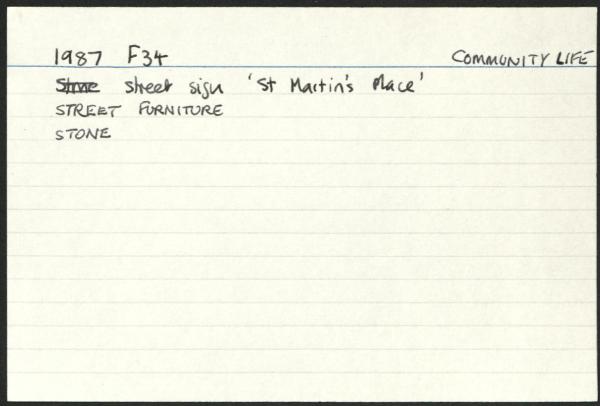 1987 F34 COMMUNITY LIFE
Stone street sign 'St Martin's Place'
STREET FURNITURE
STONE